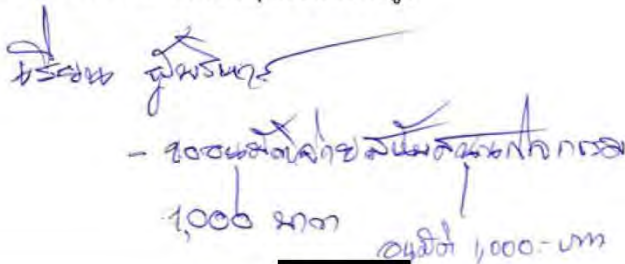 เรียน ผู้บริหาร
- ขออนุมัติจ่ายสนับสนุนกิจกรรม
1,000 บาท
อนุมัติ 1,000.- บาท